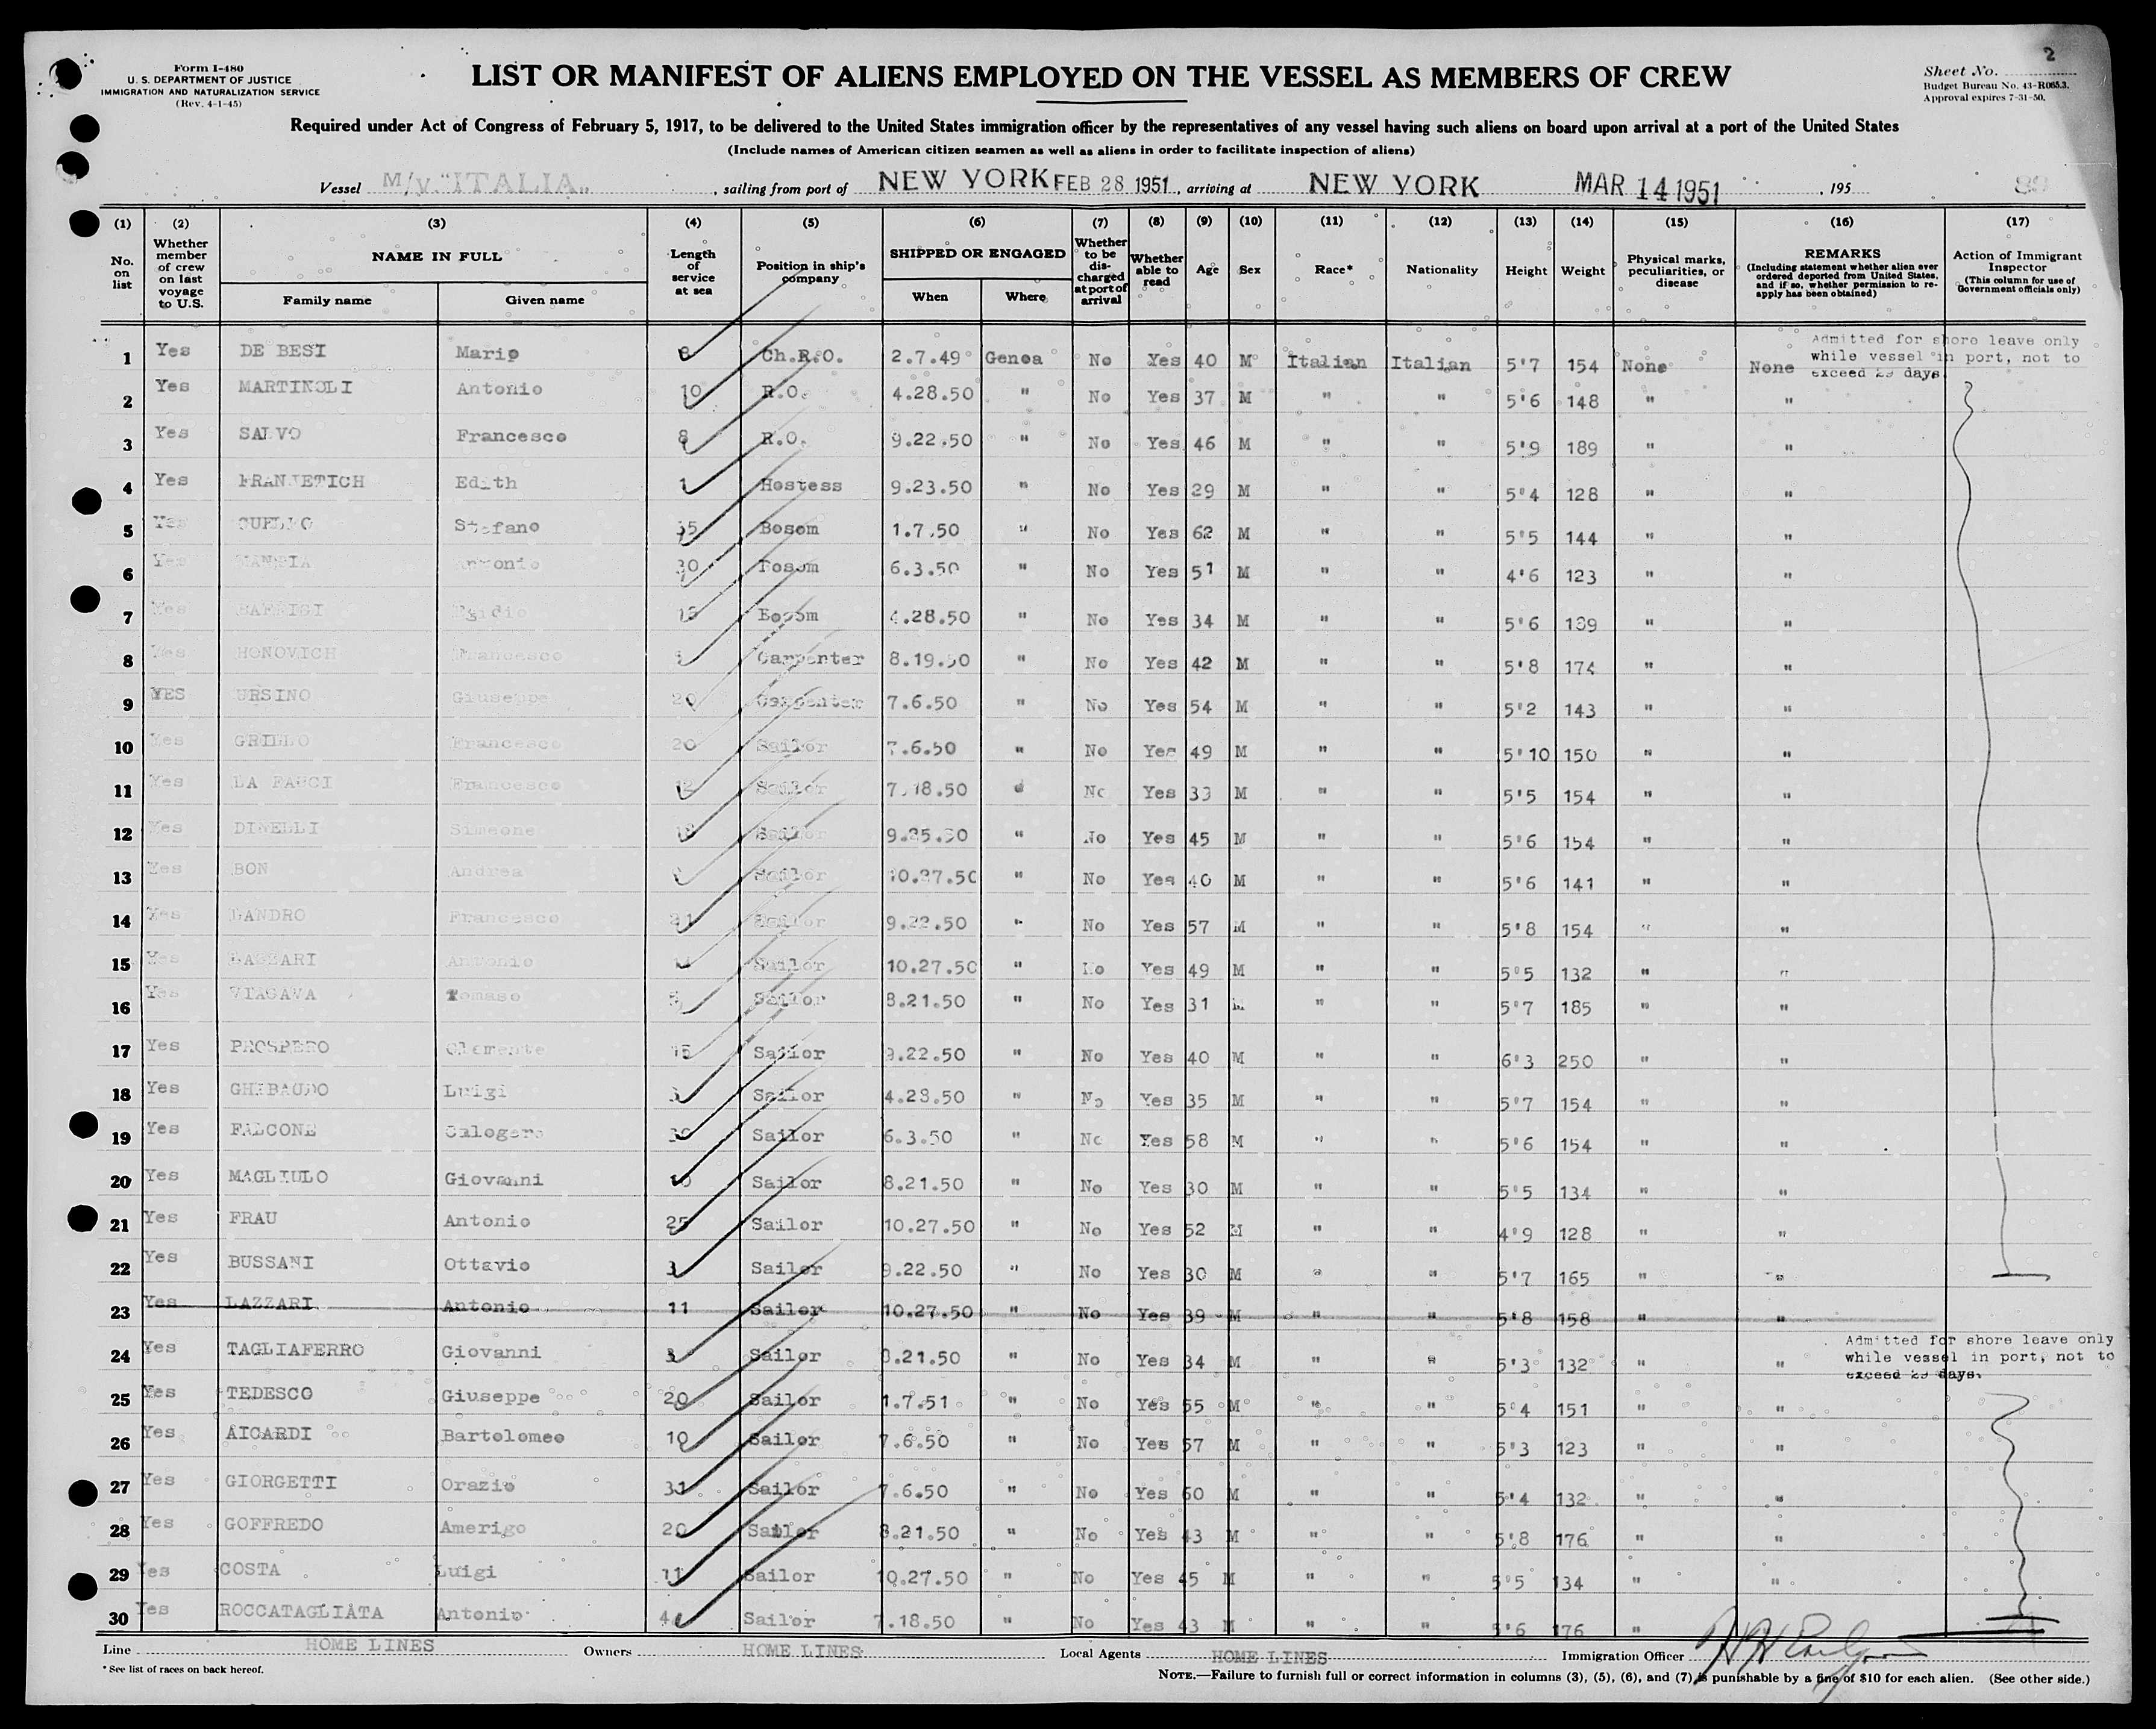 2
Form I-480
U. S. DEPARTMENT OF JUSTICE
IMMIGRATION AND NATURALIZATION SERVICE
(Rev. 4-1-45)
LIST OR MANIFEST OF ALIENS EMPLOYED ON THE VESSEL AS MEMBERS OF CREW
Sheet No.
Budget Bureau No. 43-R065.3.
Approval expires 7-31-50.
Required under Act of Congress of February 5, 1917, to be delivered to the United States immigration officer by the representatives of any vessel having such aliens on board upon arrival at a port of the United States
(Include names of American citizen seamen as well as aliens in order to facilitate inspection of aliens)
Vessel M/V "ITALIA" , sailing from port of NEW YORK FEB 28 1951 , arriving at NEW YORK MAR 14 1951 , 195
(1) (2) (3) (4) (5) (6) (7) (8) (9) (10) (11) (12) (13) (14) (15) (16) (17)
No. on list
Whether member of crew on last voyage to U.S.
NAME IN FULL
Family name
Given name
Length of service at sea
Position in ship's company
SHIPPED OR ENGAGED
When
Where
Whether to be discharged at port of arrival
Whether able to read
Age
Sex
Race*
Nationality
Height
Weight
Physical marks, peculiarities, or disease
REMARKS
(Including statement whether alien ever ordered deported from United States, and if so, whether permission to reapply has been obtained)
Action of Immigrant Inspector
(This column for use of Government officials only)
Admitted for shore leave only
while vessel in port, not to
exceed 29 days.
1 Yes DE BESI Mario 8 Ch.R.O. 2.7.49 Genoa No Yes 40 M Italian Italian 5'7 154 None None
2 Yes MARTINOLI Antonio 10 R.O. 4.28.50 " No Yes 37 M " " 5'6 148 " "
3 Yes SALVO Francesco 8 R.O. 9.22.50 " No Yes 46 M " " 5'9 189 " "
4 Yes FRANJETICH Edith 1 Hostess 9.23.50 " No Yes 29 M " " 5'4 128 " "
5 Yes CUELLO Stefano 35 Bosom 1.7.50 " No Yes 62 M " " 5'5 144 " "
6 Yes Antonio 30 Bosom 6.3.50 " No Yes 51 M " " 4'6 123 " "
7 Yes Egidio Bosom 4.28.50 " No Yes 34 M " " 5'6 139 " "
8 Yes HONOVICH Francesco Carpenter 8.19.50 " No Yes 42 M " " 5'8 174 " "
9 YES URSINO Giuseppe 20 Carpenter 7.6.50 " No Yes 54 M " " 5'2 143 " "
10 Yes GRILLO Francesco 20 Sailor 7.6.50 " No Yes 49 M " " 5'10 150 " "
11 Yes LA FAUCI Francesco 12 Sailor 7.18.50 " No Yes 33 M " " 5'5 154 " "
12 Yes DINELLI Simeone Sailor " No Yes 45 M " " 5'6 154 " "
13 Yes BON Andrea Sailor 10.27.50 " No Yes 40 M " " 5'6 141 " "
14 Yes LANDRO Francesco Sailor 9.22.50 " No Yes 57 M " " 5'8 154 " "
15 Yes Antonio Sailor 10.27.50 " No Yes 49 M " " 5'5 132 " "
16 Yes VIAGAVA Tomaso Sailor 8.21.50 " No Yes 31 M " " 5'7 185 " "
17 Yes PROSPERO Clemente 15 Sailor 9.22.50 " No Yes 40 M " " 6'3 250 " "
18 Yes GHIBAUDO Luigi Sailor 4.28.50 " No Yes 35 M " " 5'7 154 " "
19 Yes FALCONE Calogero Sailor 6.3.50 " No Yes 58 M " " 5'6 154 " "
20 Yes MAGLIULO Giovanni Sailor 8.21.50 " No Yes 30 M " " 5'5 134 " "
21 Yes FRAU Antonio 25 Sailor 10.27.50 " No Yes 52 M " " 4'9 128 " "
22 Yes BUSSANI Ottavio 3 Sailor 9.22.50 " No Yes 30 M " " 5'7 165 " "
23 Yes LAZZARI Antonio 11 Sailor 10.27.50 " No Yes 39 M " " 5'8 158 " "
Admitted for shore leave only
while vessel in port, not to
exceed 29 days.
24 Yes TAGLIAFERRO Giovanni 3 Sailor 8.21.50 " No Yes 34 M " " 5'3 132 " "
25 Yes TEDESCO Giuseppe 20 Sailor 1.7.51 " No Yes 55 M " " 5'4 151 " "
26 Yes AICARDI Bartolomeo 10 Sailor 7.6.50 " No Yes 57 M " " 5'3 123 " "
27 Yes GIORGETTI Orazio 31 Sailor 7.6.50 " No Yes 50 M " " 5'4 132 " "
28 Yes GOFFREDO Amerigo 20 Sailor 8.21.50 " No Yes 43 M " " 5'8 176 " "
29 Yes COSTA Luigi 11 Sailor 10.27.50 " No Yes 45 M " " 5'5 134 " "
30 Yes ROCCATAGLIATA Antonio Sailor 7.18.50 " No Yes 43 M " " 5'6 176 "
Line HOME LINES Owners HOME LINES Local Agents HOME LINES Immigration Officer
* See list of races on back hereof.
NOTE.—Failure to furnish full or correct information in columns (3), (5), (6), and (7) is punishable by a fine of $10 for each alien. (See other side.)